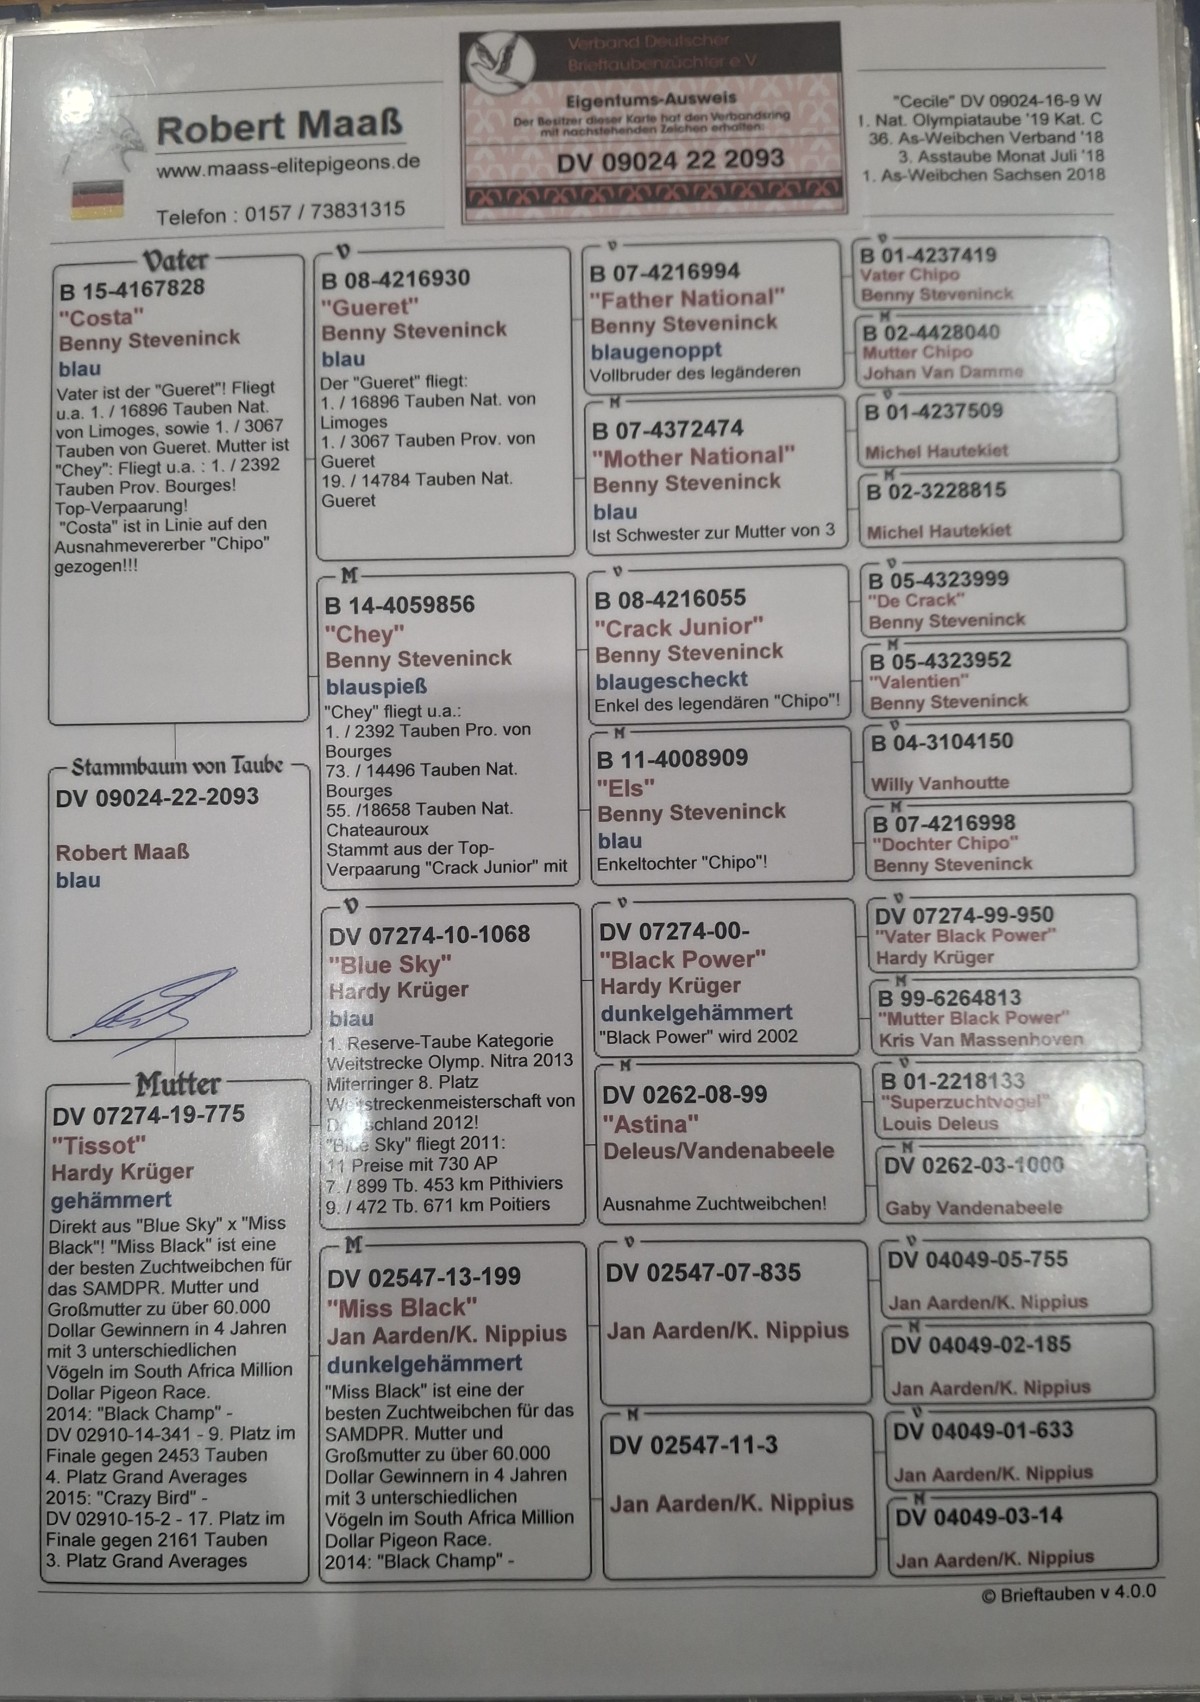 Robert Maaß
www.maass-elitepigeons.de
Telefon : 0157 / 73831315
Verband Deutscher
Brieftaubenzüchter e.V.
Eigentums-Ausweis
Der Besitzer dieser Karte hat den Verbandsring
mit nachstehenden Zeichen erhalten:
DV 09024 22 2093
"Cecile" DV 09024-16-9 W
1. Nat. Olympiataube '19 Kat. C
36. As-Weibchen Verband '18
3. Asstaube Monat Juli '18
1. As-Weibchen Sachsen 2018
Vater
B 15-4167828
"Costa"
Benny Steveninck
blau
Vater ist der "Gueret"! Fliegt
u.a. 1. / 16896 Tauben Nat.
von Limoges, sowie 1. / 3067
Tauben von Gueret. Mutter ist
"Chey": Fliegt u.a. : 1. / 2392
Tauben Prov. Bourges!
Top-Verpaarung!
"Costa" ist in Linie auf den
Ausnahmevererber "Chipo"
gezogen!!!
Stammbaum von Taube
DV 09024-22-2093
Robert Maaß
blau
Mutter
DV 07274-19-775
"Tissot"
Hardy Krüger
gehämmert
Direkt aus "Blue Sky" x "Miss
Black"! "Miss Black" ist eine
der besten Zuchtweibchen für
das SAMDPR. Mutter und
Großmutter zu über 60.000
Dollar Gewinnern in 4 Jahren
mit 3 unterschiedlichen
Vögeln im South Africa Million
Dollar Pigeon Race.
2014: "Black Champ" -
DV 02910-14-341 - 9. Platz im
Finale gegen 2453 Tauben
4. Platz Grand Averages
2015: "Crazy Bird" -
DV 02910-15-2 - 17. Platz im
Finale gegen 2161 Tauben
3. Platz Grand Averages
V
B 08-4216930
"Gueret"
Benny Steveninck
blau
Der "Gueret" fliegt:
1. / 16896 Tauben Nat. von
Limoges
1. / 3067 Tauben Prov. von
Gueret
19. / 14784 Tauben Nat.
Gueret
M
B 14-4059856
"Chey"
Benny Steveninck
blauspieß
"Chey" fliegt u.a.:
1. / 2392 Tauben Pro. von
Bourges
73. / 14496 Tauben Nat.
Bourges
55. /18658 Tauben Nat.
Chateauroux
Stammt aus der Top-
Verpaarung "Crack Junior" mit
V
DV 07274-10-1068
"Blue Sky"
Hardy Krüger
blau
1. Reserve-Taube Kategorie
Weitstrecke Olymp. Nitra 2013
Miterringer 8. Platz
Weitstreckenmeisterschaft von
Deutschland 2012!
"Blue Sky" fliegt 2011:
11 Preise mit 730 AP
7. / 899 Tb. 453 km Pithiviers
9. / 472 Tb. 671 km Poitiers
M
DV 02547-13-199
"Miss Black"
Jan Aarden/K. Nippius
dunkelgehämmert
"Miss Black" ist eine der
besten Zuchtweibchen für das
SAMDPR. Mutter und
Großmutter zu über 60.000
Dollar Gewinnern in 4 Jahren
mit 3 unterschiedlichen
Vögeln im South Africa Million
Dollar Pigeon Race.
2014: "Black Champ" -
V
B 07-4216994
"Father National"
Benny Steveninck
blaugenoppt
Vollbruder des legänderen
M
B 07-4372474
"Mother National"
Benny Steveninck
blau
Ist Schwester zur Mutter von 3
V
B 08-4216055
"Crack Junior"
Benny Steveninck
blaugescheckt
Enkel des legendären "Chipo"!
M
B 11-4008909
"Els"
Benny Steveninck
blau
Enkeltochter "Chipo"!
V
DV 07274-00-
"Black Power"
Hardy Krüger
dunkelgehämmert
"Black Power" wird 2002
M
DV 0262-08-99
"Astina"
Deleus/Vandenabeele
Ausnahme Zuchtweibchen!
V
DV 02547-07-835
Jan Aarden/K. Nippius
M
DV 02547-11-3
Jan Aarden/K. Nippius
V
B 01-4237419
Vater Chipo
Benny Steveninck
M
B 02-4428040
Mutter Chipo
Johan Van Damme
V
B 01-4237509
Michel Hautekiet
M
B 02-3228815
Michel Hautekiet
V
B 05-4323999
"De Crack"
Benny Steveninck
M
B 05-4323952
"Valentien"
Benny Steveninck
V
B 04-3104150
Willy Vanhoutte
M
B 07-4216998
"Dochter Chipo"
Benny Steveninck
V
DV 07274-99-950
"Vater Black Power"
Hardy Krüger
M
B 99-6264813
"Mutter Black Power"
Kris Van Massenhoven
V
B 01-2218133
"Superzuchtvogel"
Louis Deleus
M
DV 0262-03-1000
Gaby Vandenabeele
V
DV 04049-05-755
Jan Aarden/K. Nippius
M
DV 04049-02-185
Jan Aarden/K. Nippius
V
DV 04049-01-633
Jan Aarden/K. Nippius
M
DV 04049-03-14
Jan Aarden/K. Nippius
© Brieftauben v 4.0.0